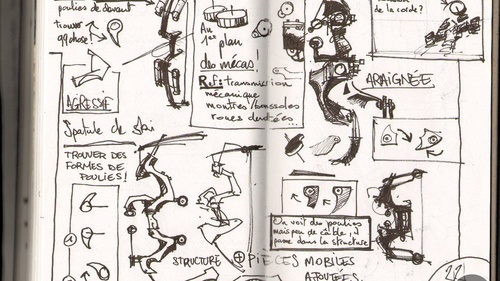 poulies de devant
trouver
qqchose!
AGRESSIF
Spatule de Ski
TROUVER DES
FORMES DE
POULIES!
Au
1er plan
des mécas!
Ref: transmission
mécanique
montres/boussoles
roues dentées...
de la corde?
ARAIGNÉE
On voit des poulies
mais peu de câble,
passe dans la structure
STRUCTURE ⊕ PIÈCES MOBILES
AJOUTÉES
22